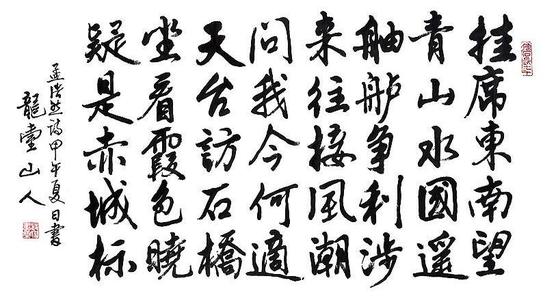 挂席東南望
青山水國遥
舳舻争利涉
来往接風潮
問我今何適
天台訪石橋
坐看霞色曉
疑是赤城标
孟浩然詩甲午夏日書
龍堂山人